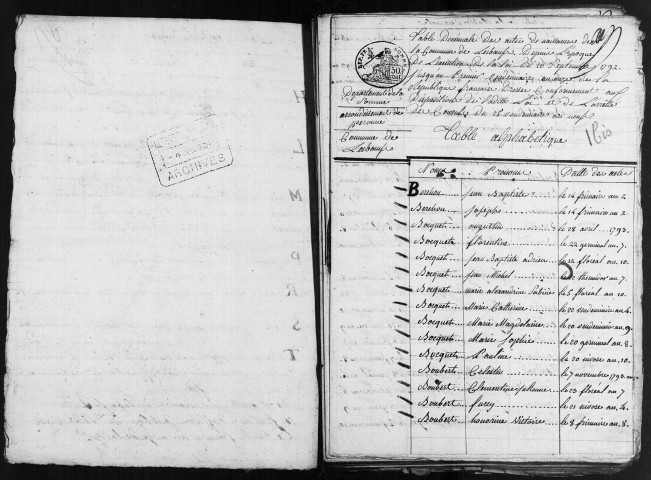 ARCHIVES
H
L
M
P
R
S
T
50
Table Décennale des actes de naissance de
la Commune de Lesboeufs Depuis L'époque
de L'émission de la loi du 20 Septembre 1792.
jusqu'au Premier vendémiaire an onze de la
République française Dressée Conformément aux
Dispositions de laditte Loi et de L'arrêté
des Consuls du 25 vendemiaire an neuf
Departement de la
Somme
arrondissement de
peronne
Commune de
Lesboeufs
Table alphabetique
16 io
Noms Prenoms Datte des actes
Berchou jean Baptiste le 14 frimaire an 2
Berchou josephe le 14 frimaire an 2.
Bocquet augustin le 28 avril 1793.
Bocquet florentine le 22 germinal an 7.
Bocquet jean Baptiste adrien le 12 floréal an 10.
Bocquet jean Michel thermidor an 7
Bocquet marie alexandrine Sabine le 5 floréal an 10.
Bocquet Marie Catherine le 22 vendemiaire an 4.
Bocquet Marie Magdelaine le 20 vendemiaire an 9.
Bocquet Marie Sophie le 20 germinal an 8.
Bocquet Pauline le 20 nivose an 10.
Boubert Celeste le 7 novembre 1793
Boubert Clementine le 23 floréal an 7
Boubert fursy le 21 nivose an 4.
Boubert honorine Victoire le 8 frimaire an 8.